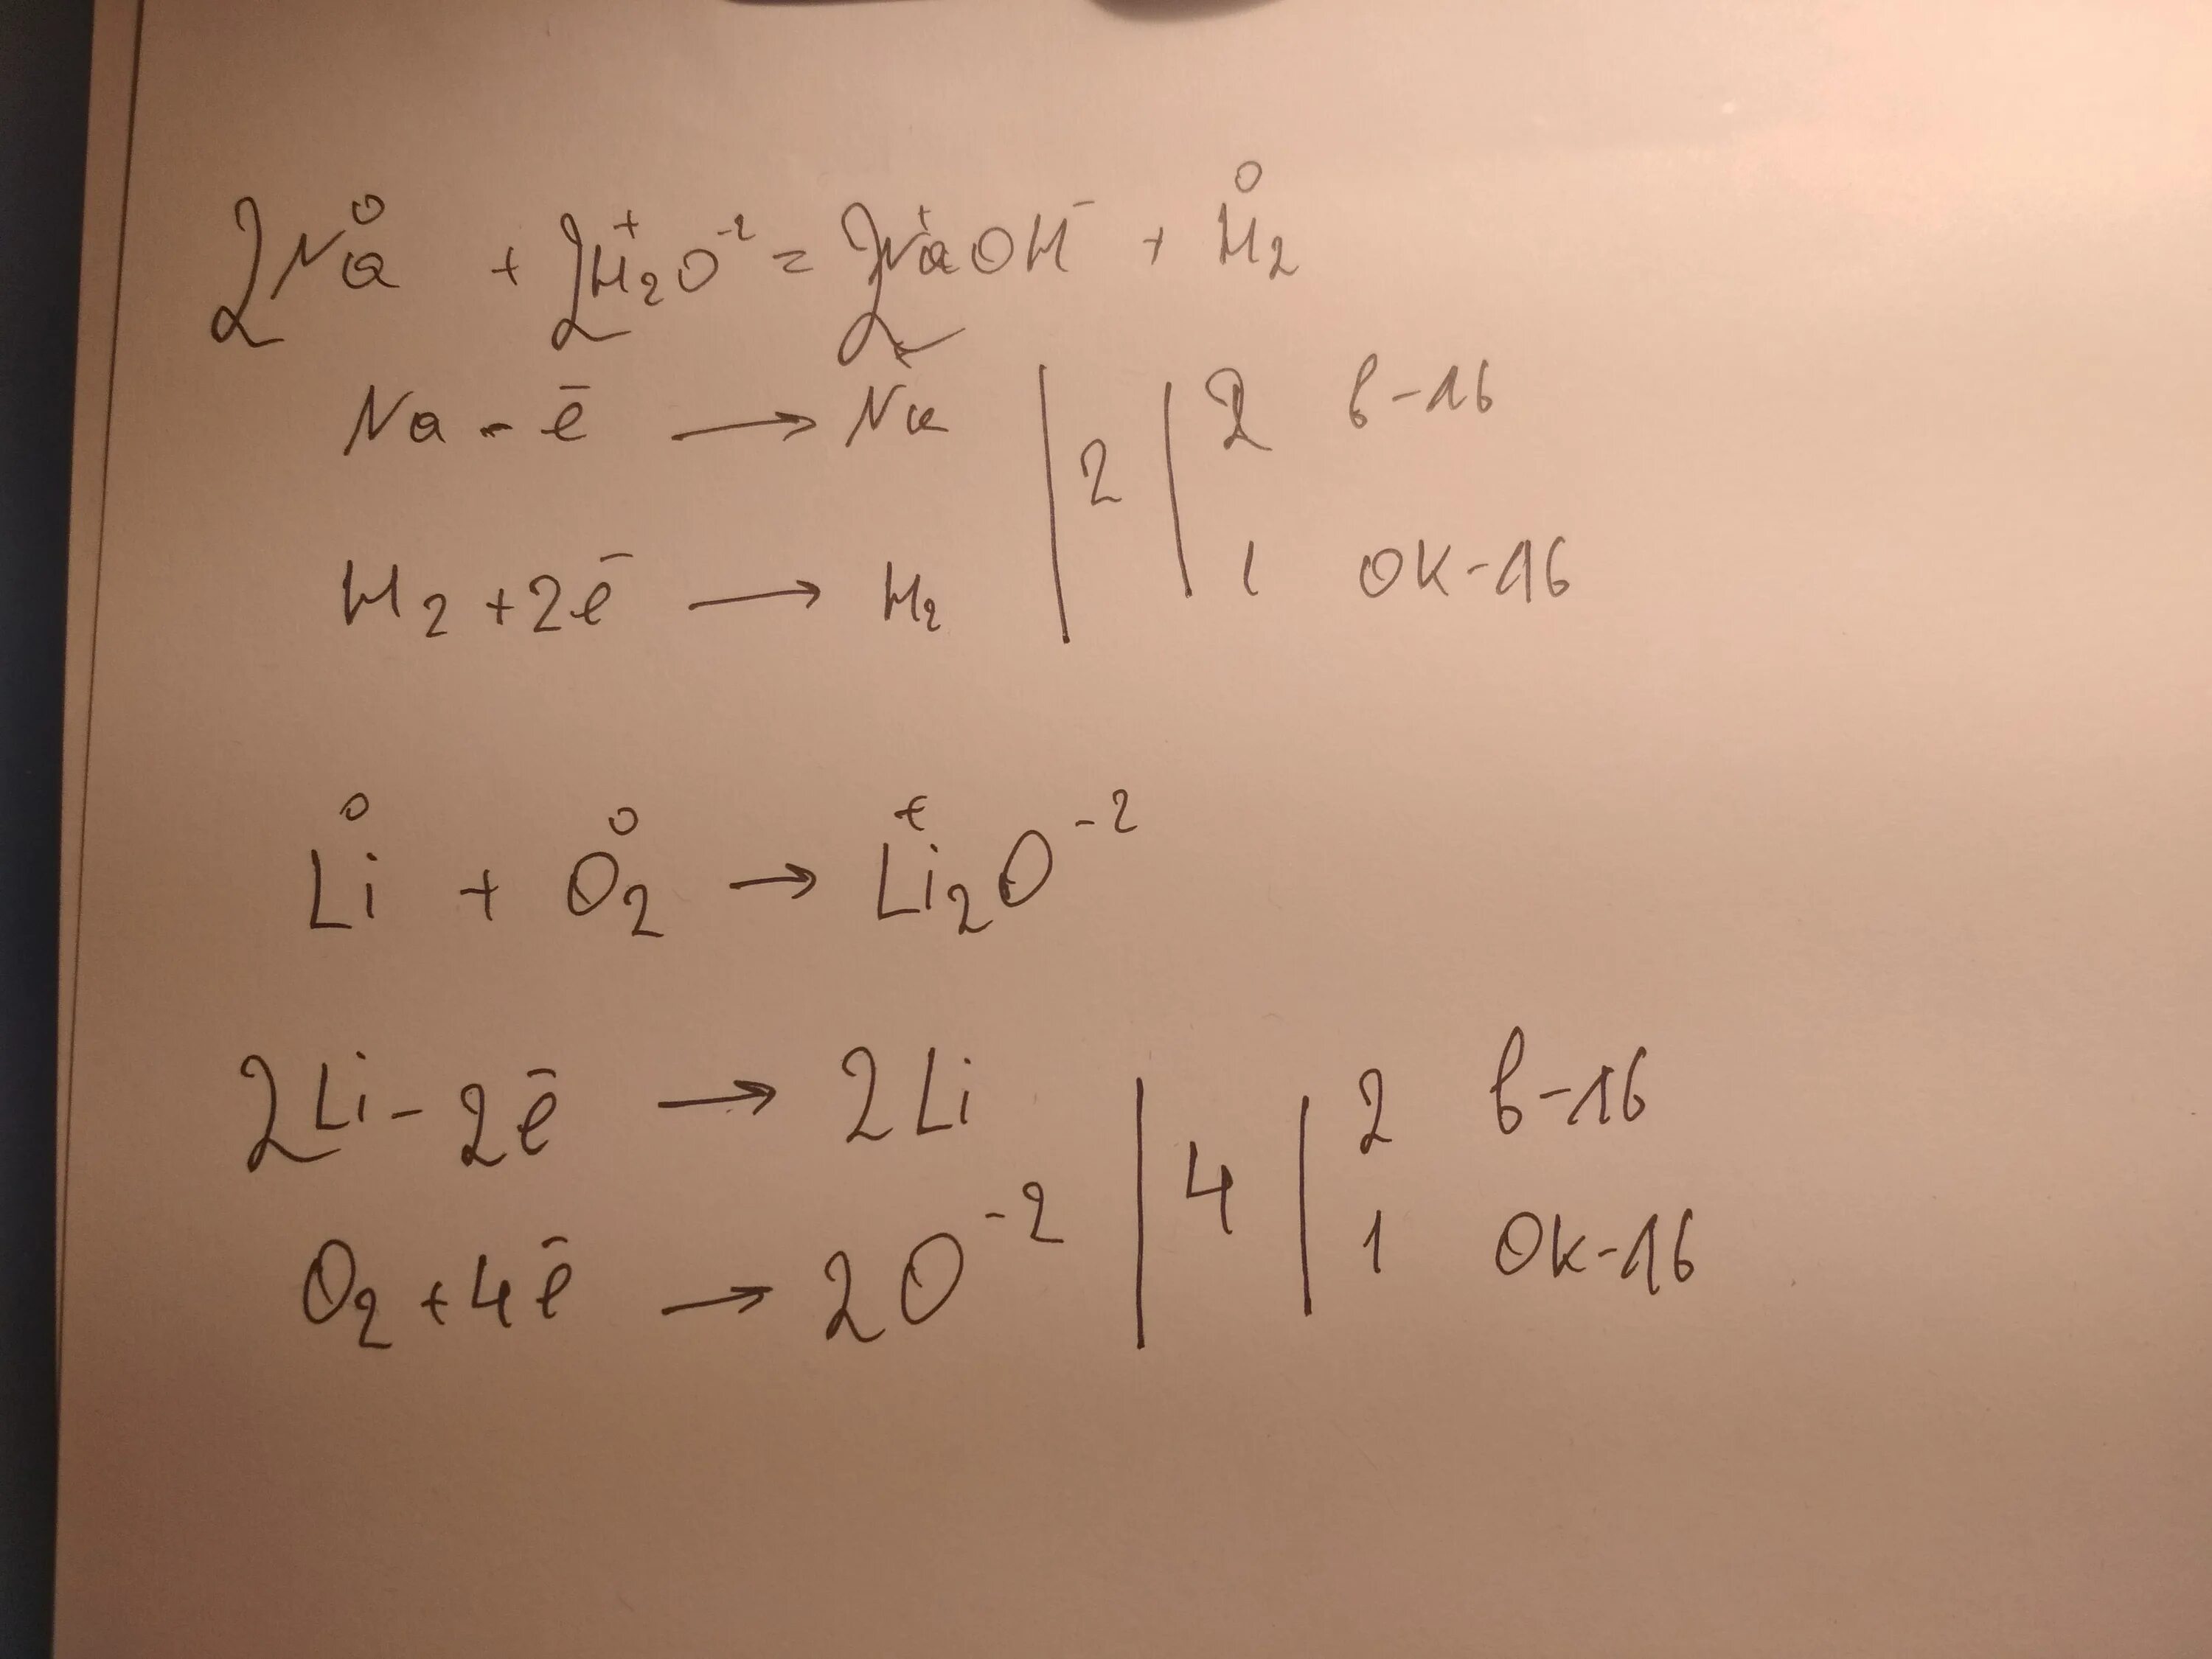 2Na⁰ + 2H₂⁺O⁻² = 2Na⁺OH⁻ + H₂⁰
Na - ē → Na | 2 | 2 в-ль
H₂ + 2ē → H₂ 1 ок-ль
Li⁰ + O₂⁰ → Li₂⁺O⁻²
2Li - 2ē → 2Li | 4 | 2 в-ль
O₂ + 4ē → 2O⁻² 1 ок-ль